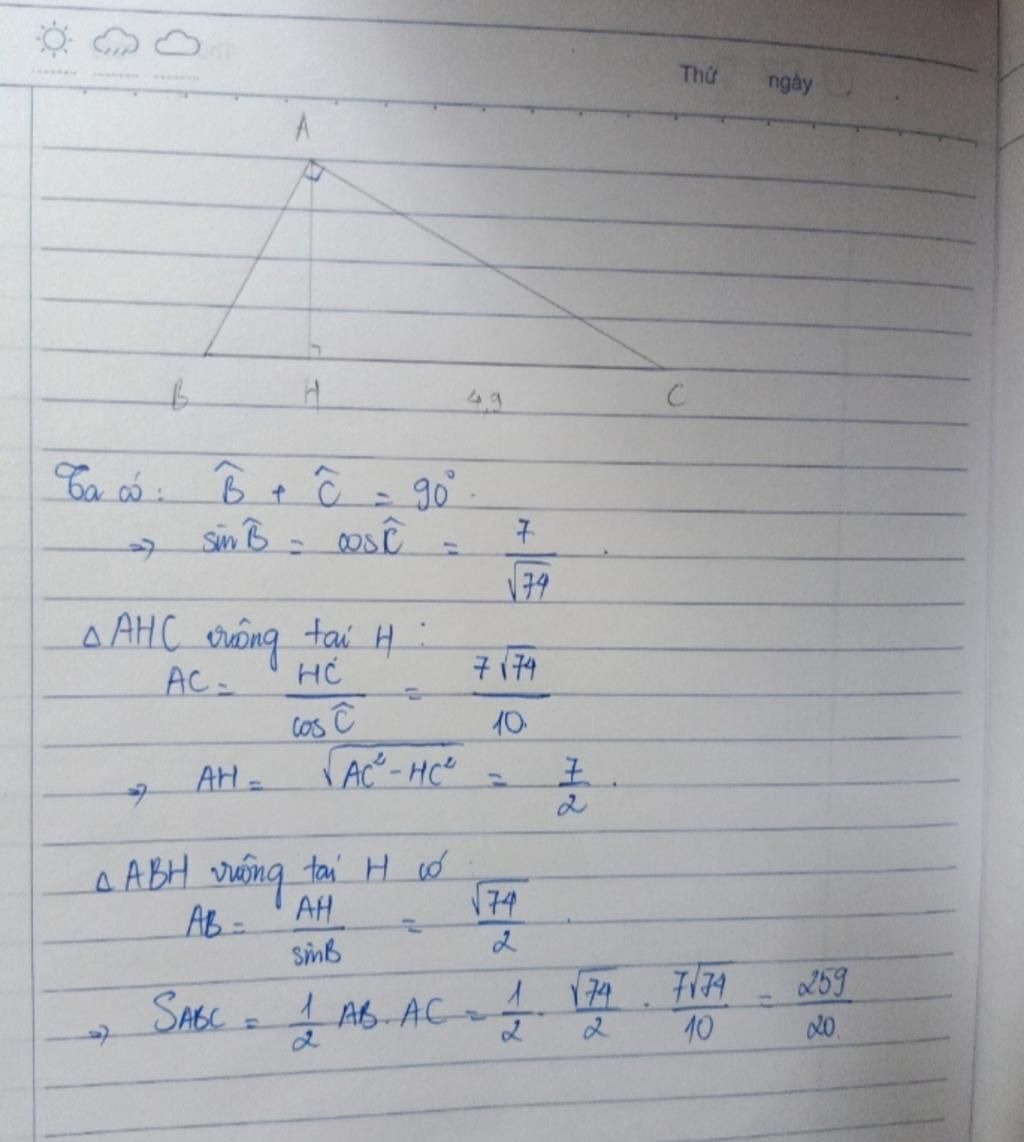 Thứ ngày
A
B H 4,9 C
Ta có: B̂ + Ĉ = 90°.
=> sin B̂ = cos Ĉ = 7/√74.
△AHC vuông tại H:
AC = HC/cos Ĉ = 7√74/10
=> AH = √(AC² - HC²) = 7/2.
△ABH vuông tại H có
AB = AH/sin B = √74/2.
=> SABC = 1/2 AB. AC = 1/2 . √74/2 . 7√74/10 = 259/20.